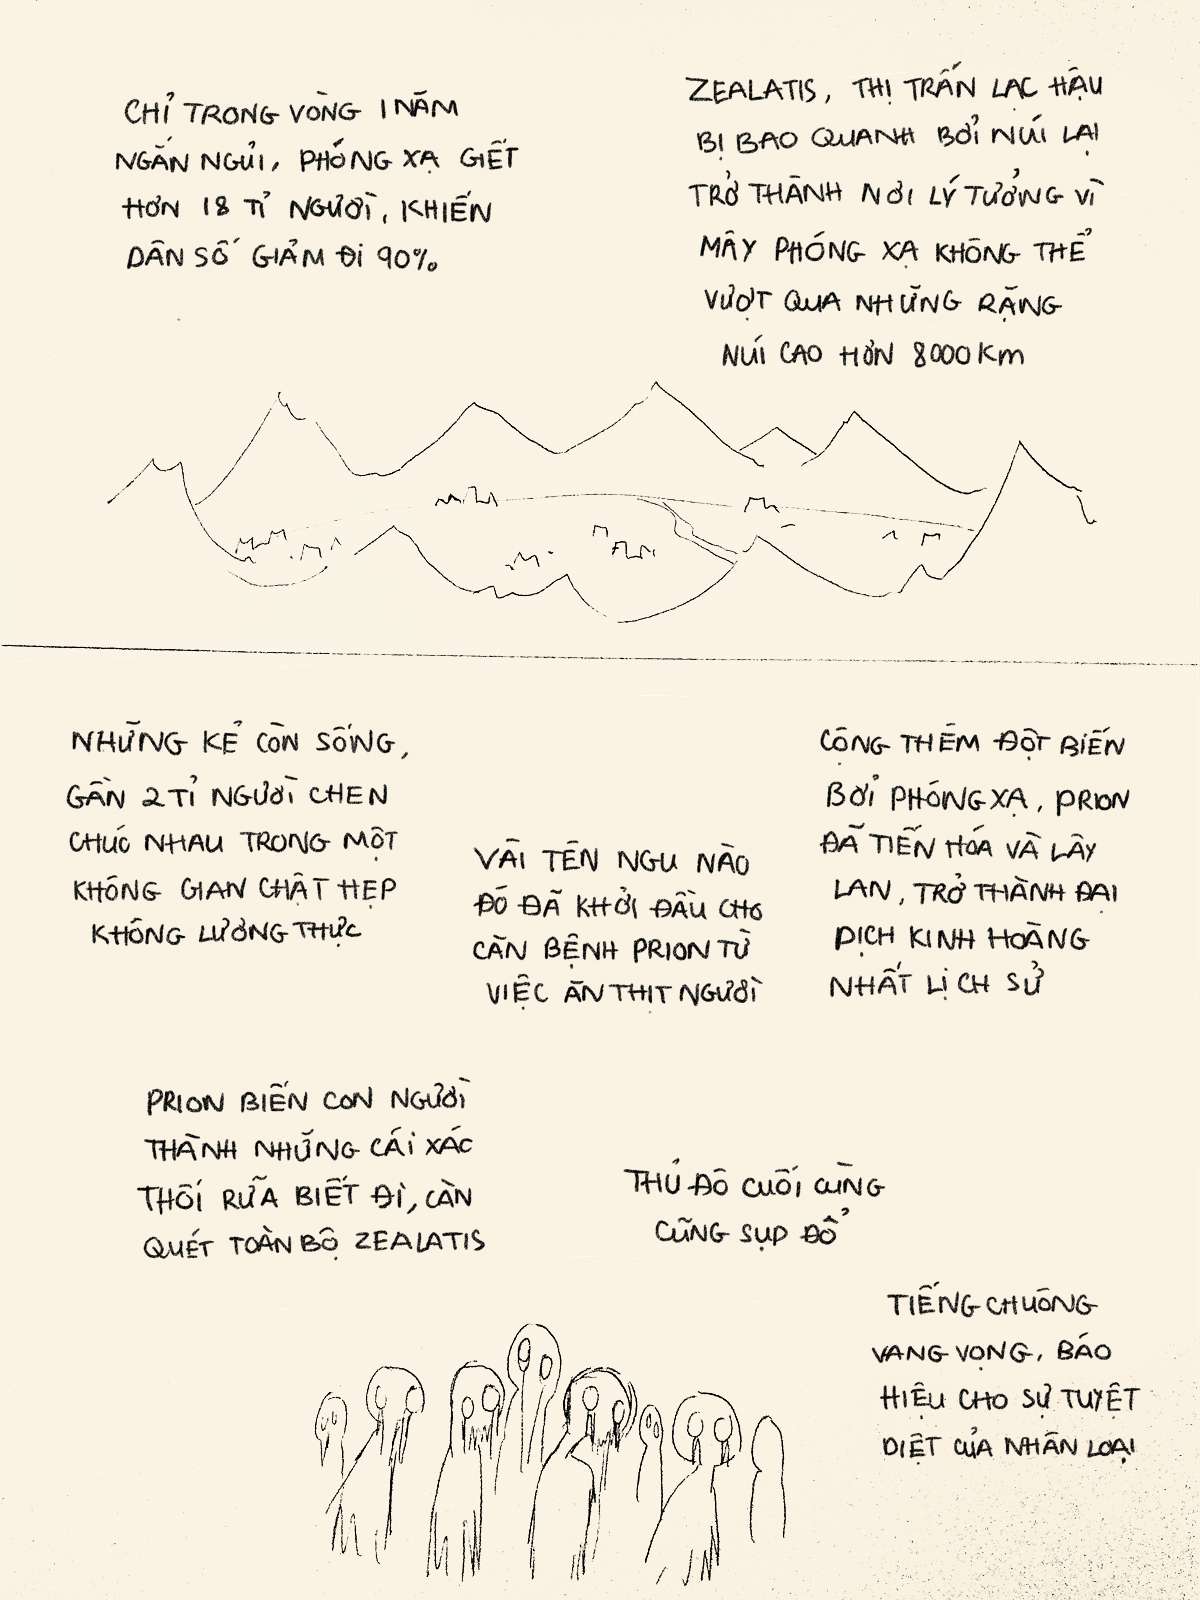 CHỈ TRONG VÒNG 1 NĂM
NGẮN NGỦI, PHÓNG XẠ GIẾT
HƠN 18 TỈ NGƯỜI, KHIẾN
DÂN SỐ GIẢM ĐI 90%
ZEALATIS, THỊ TRẤN LẠC HẬU
BỊ BAO QUANH BỞI NÚI LẠI
TRỞ THÀNH NƠI LÝ TƯỞNG VÌ
MÂY PHÓNG XẠ KHÔNG THỂ
VƯỢT QUA NHỮNG RẶNG
NÚI CAO HƠN 8000Km
NHỮNG KẺ CÒN SỐNG,
GẦN 2 TỈ NGƯỜI CHEN
CHÚC NHAU TRONG MỘT
KHÔNG GIAN CHẬT HẸP
KHÔNG LƯƠNG THỰC
VÀI TÊN NGU NÀO
ĐÓ ĐÃ KHỞI ĐẦU CHO
CĂN BỆNH PRION TỪ
VIỆC ĂN THỊT NGƯỜI
CỘNG THÊM ĐỘT BIẾN
BỞI PHÓNG XẠ, PRION
ĐÃ TIẾN HÓA VÀ LÂY
LAN, TRỞ THÀNH ĐẠI
DỊCH KINH HOÀNG
NHẤT LỊCH SỬ
PRION BIẾN CON NGƯỜI
THÀNH NHỮNG CÁI XÁC
THỐI RỮA BIẾT ĐI, CÀN
QUÉT TOÀN BỘ ZEALATIS
THỦ ĐÔ CUỐI CÙNG
CŨNG SỤP ĐỔ
TIẾNG CHUÔNG
VANG VỌNG, BÁO
HIỆU CHO SỰ TUYỆT
DIỆT CỦA NHÂN LOẠI